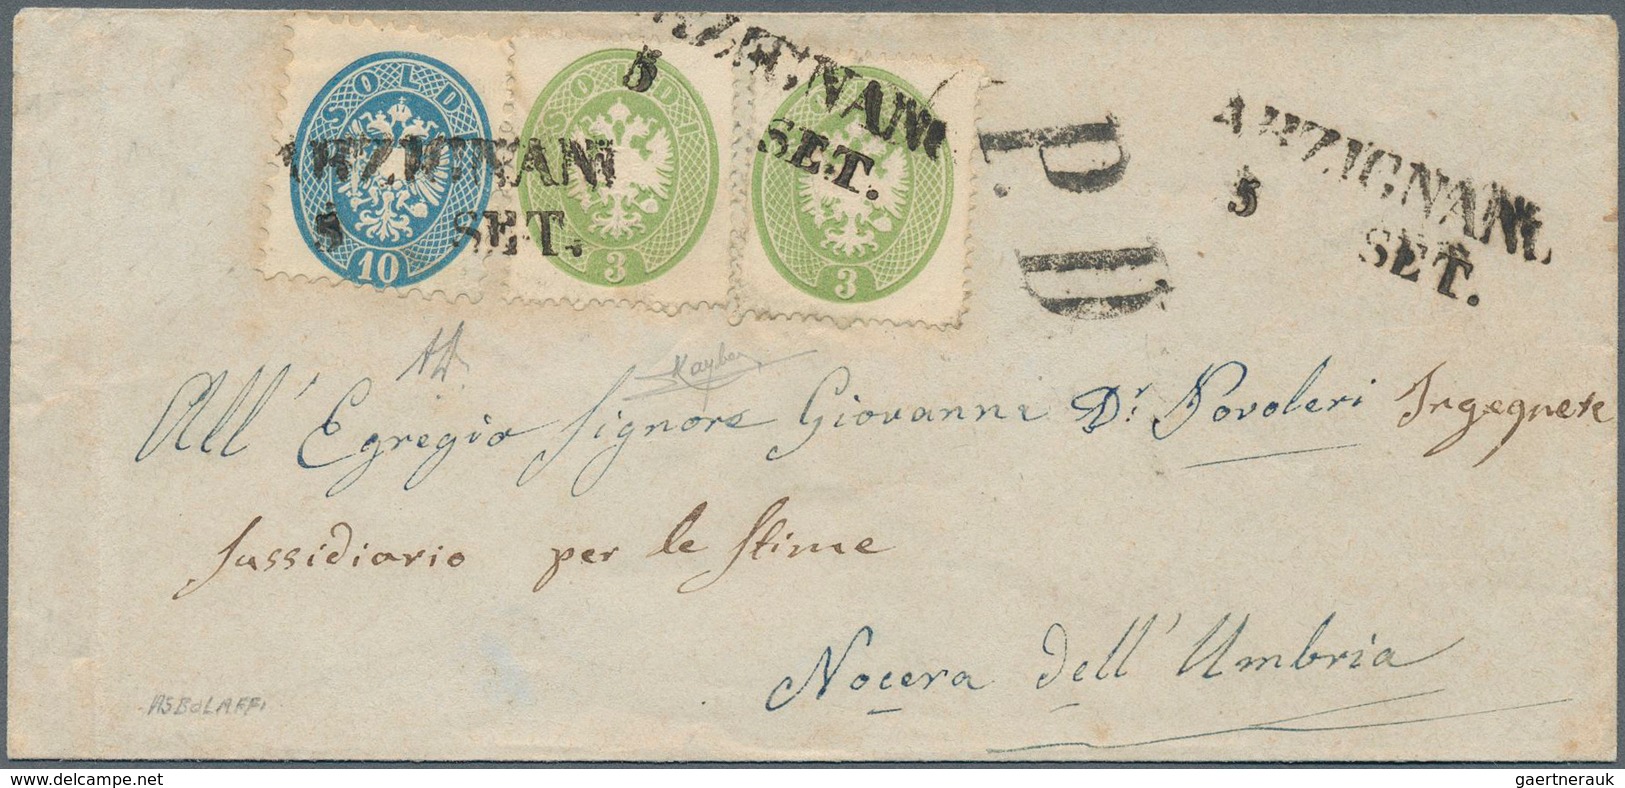 SOLDI
10
SOLDI
3
SOLDI
3
ARZIGNANO
5 SET.
ARZIGNANO
5 SET.
P.D.
ARZIGNANO
5 SET.
All' Egregio Signore Giovanni Dr. Povoleri Ingegnere
sussidiario per le Stime
Nocera dell' Umbria
ASBOLAFFI
www.delcampe.net
gaertnerauk